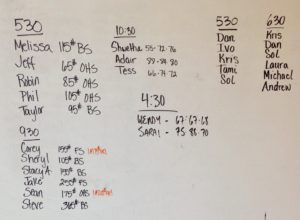 530
Melissa 115# BS
Jeff 65# OHS
Robin 85# OHS
Phil 105# OHS
Taylor 95# BS
930
Corey 155# FS
Sheryl 105# BS
Stacy A. 155# BS
Jake 255# FS
Sean 175# OHS
Steve 365# BS
10:30
Shwetha 55-72-76
Adair
Tess 66-74-72
4:30
WENDY - 67-67-68
SARAI - 75 88-70
530
Dan
Ivo
Kris
Tami
Sol
630
Kris
Dan
Sol
Laura
Michael
Andrew